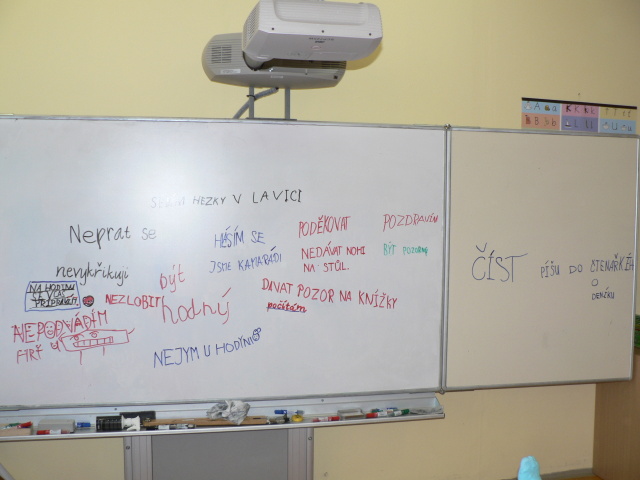 SEDÍM HEZKY V LAVICI
Neprat se
HLÁSÍM SE
PODĚKOVAT
POZDRAVÍM
nevykřikuji
být
hodný
JSME KAMARÁDI
NEDÁVAT NOHI
NA STŮL.
BÝT POZORNÝ
NA HODINU
SE VČAS
PŘIPRAVIT
NEZLOBIT
DAVAT POZOR NA KNÍŽKY
počítám
NEPODVÁDÍM
NEJYM U HODYNI
ČÍST
PÍŠU DO ČTENAŘKÉH
O
DENÍKU